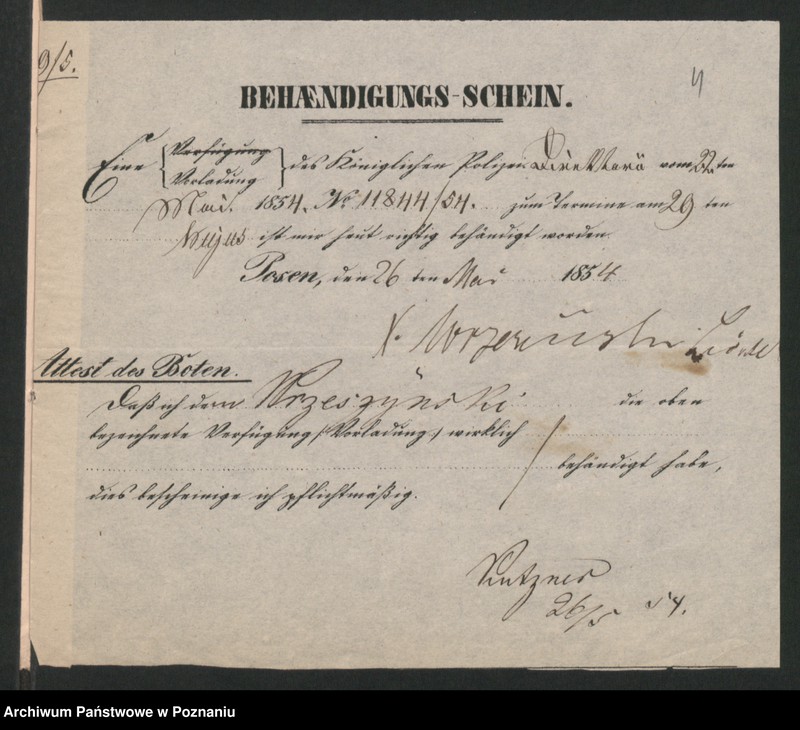 9/5.
4
BEHÆNDIGUNGS-SCHEIN.
Eine Verfügung Vorladung des Königlichen Polizei Direktors vom 22 ten
Mai. 1854. No 11844/54. zum Termine am 29 ten
hujus ist mir heut richtig behändigt worden.
Posen, den 26 ten Mai 1854
Attest des Boten.
Daß ich dem Wrzeszÿnski die oben
bezeichnete Verfügung (Vorladung) wirklich
behändigt habe,
dies bescheinige ich pflichtmäßig.
26/5 54.
Archiwum Państwowe w Poznaniu